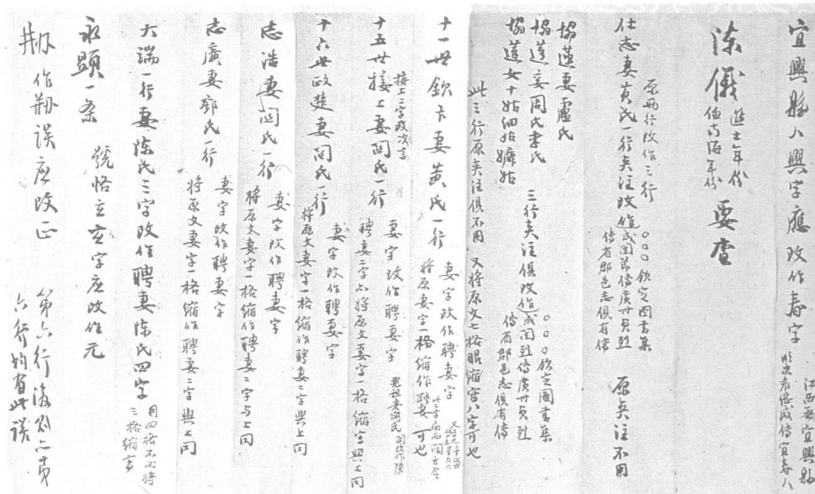 宜興縣人興字應改作春字
江西無宜興縣
陳儀
進士年份
要查
原兩行改作三行
仕志妻黃氏一行夾注改作
○○○欽定圖書集
成閨節傳廣廾貞烈
傳省郡邑志俱有傳
原夾注不用
揚蓮妻盧氏
揚蓮妾周氏李氏
揚蓮女十姑細姑嫌姑
三行夾注俱改作
○○○欽定圖書集
成閨烈傳廣廾貞烈
傳省郡邑志俱有傳
此三行原夾注俱不用
又將原文七格眼縮寫八字可也
十一世欽卞妻黃氏一行
妻字改作聘妻字
將原妻字一格縮作聘妻可也
十五世接上妻閻氏一行
接上二字改次言
妻字改作聘妻字
聘妻二字亦將原文妻字一格縮寫與上同
十六世政楚妻閻氏一行
妻字改作聘妻字
將原文妻字一格縮作聘妻二字與上同
志浩妻閻氏一行
妻字改作聘妻字
將原文妻字一格縮作聘妻二字与上同
志廣妻鄧氏一行
妻字改作聘妻字
將原文妻字一格縮作聘妻二字與上同
大端一行妻陳氏三字改作聘妻陳氏四字
用四格不必將
三格縮寫
永頭一条
號恪立立字應改作元
作刱誤应改正
第六行後幅六第
六行均有此誤